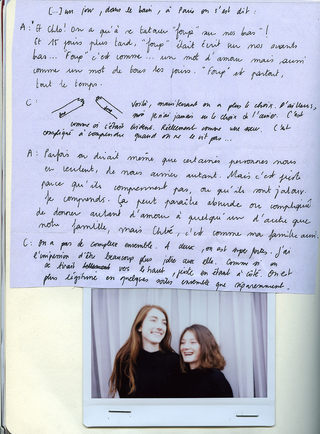 (...) un jour, dans le bain, à Paris on s'est dit :
A : "Et Chlo! On a qu'à se tatouer "foup" sur nos bras"!
Et 15 jours plus tard, "foup" était écrit sur nos avants
bras... Foup c'est comme... un mot d'amour mais aussi
comme un mot de tous les jours. "Foup" et partout,
tout le temps.
C : Voilà, maintenant on a plus le choix. D'ailleurs,
moi j'ai jamais eu le choix de l'aimer. C'est
comme si c'était évident. Réellement comme une sœur. C'est
compliqué à comprendre quand on ne l'est pas...
A : Parfois on dirait même que certaines personnes nous
en veulent, de nous aimer autant. Mais c'est
parce qu'ils comprennent pas, ou qu'ils sont jaloux.
Je comprends. Ça peut paraître absurde ou compliqué
de donner autant d'amour à quelqu'un d'autre que
notre famille, mais Chloé, c'est comme ma famille aussi.
C : On a pas de complexe ensemble. À deux, on est super fortes. J'ai
l'impression d'être beaucoup plus jolie avec elle. Comme si on
se tirait vers le haut, juste en étant à côté. On est
plus légitime en quelques sortes ensemble que séparemment.